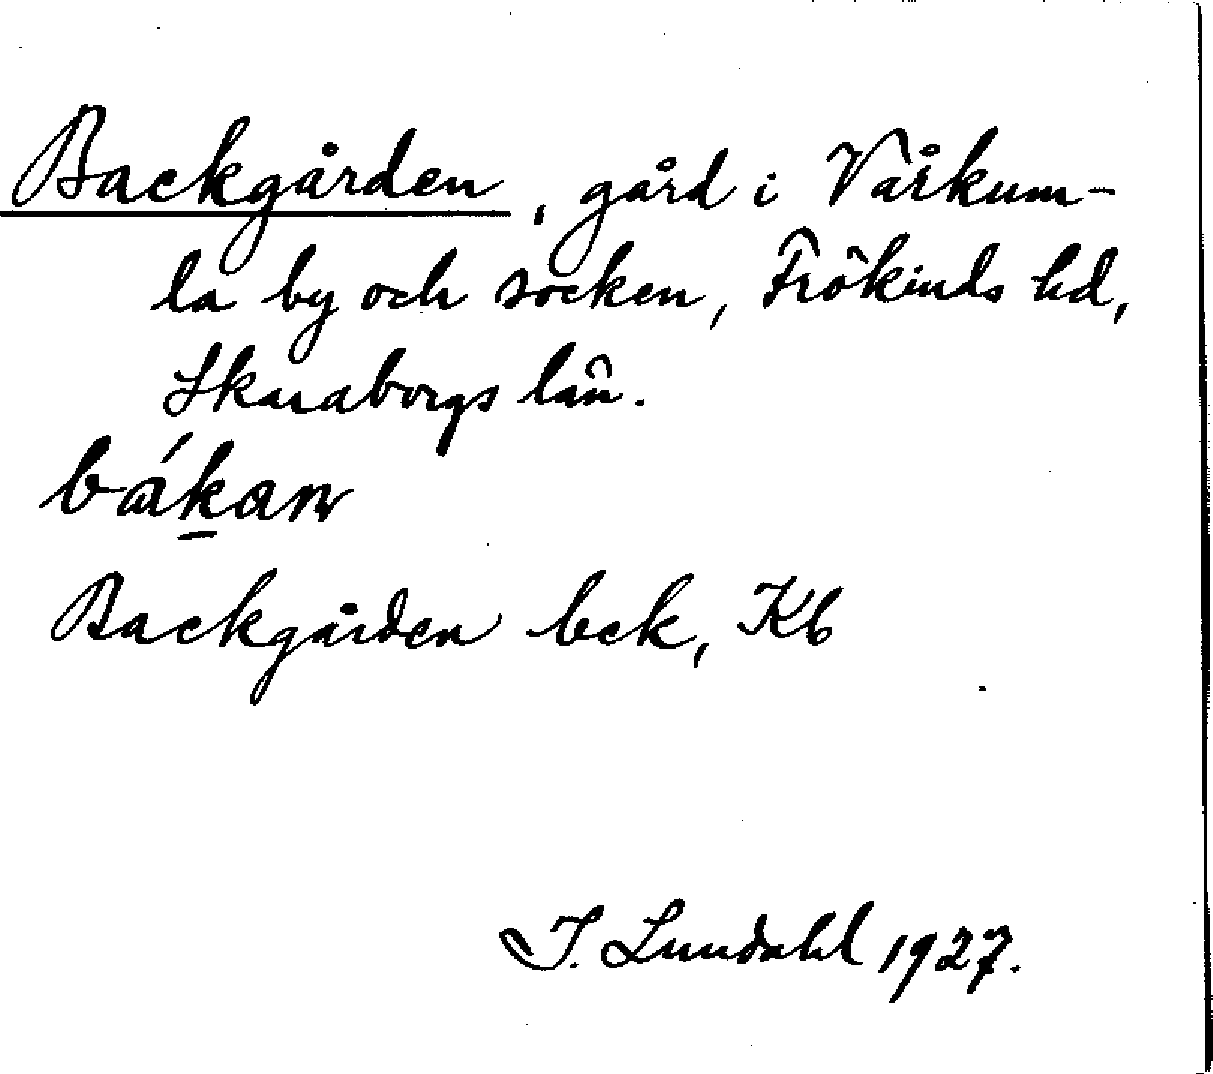 Backgården, gård i Vårkum-
la by och socken, Frökinds hd,
Skaraborgs län.
bákan
Backgården bck, Kb
I. Lundahl 1927.